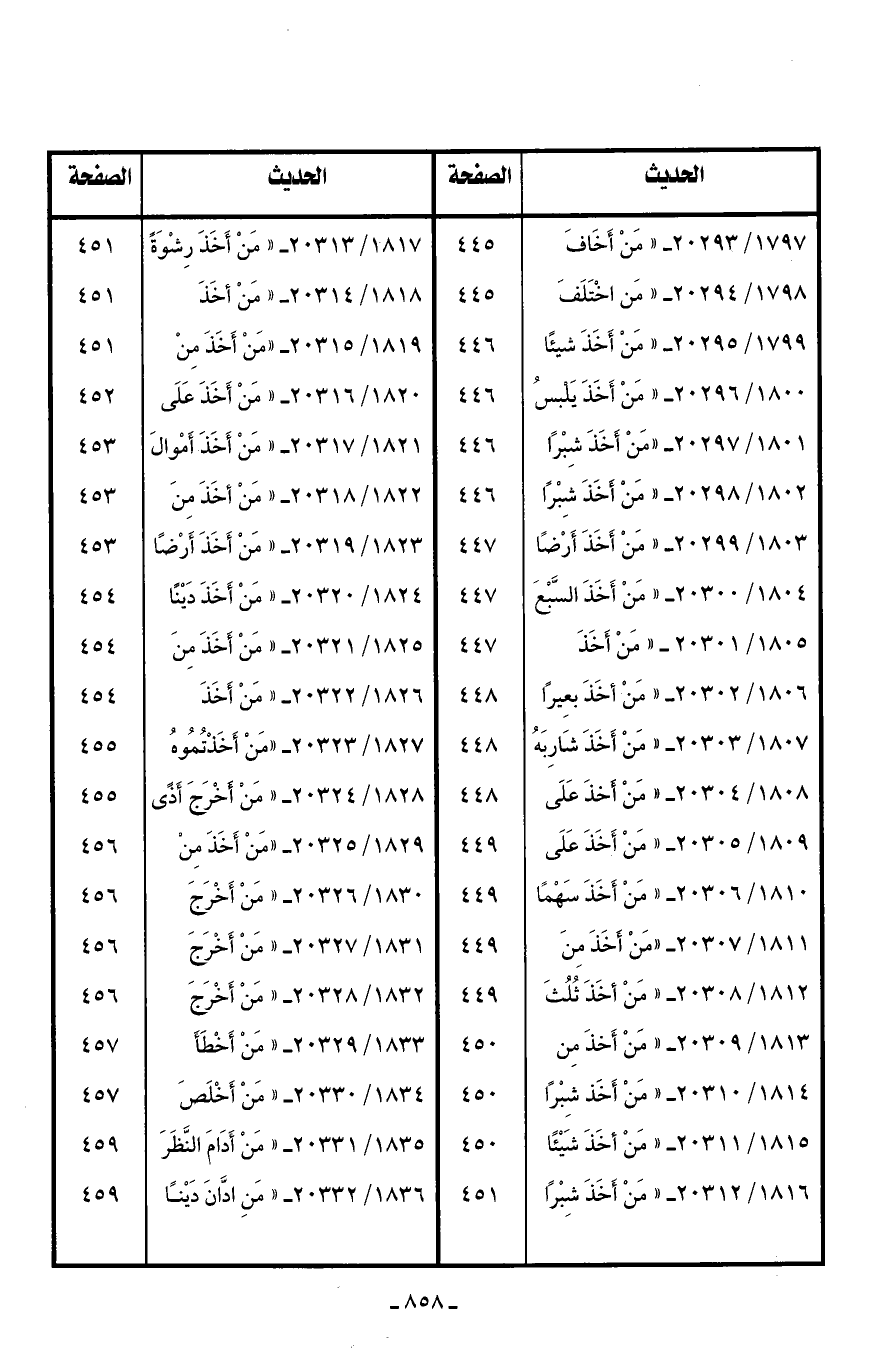 الحديث الصفحة الحديث الصفحة
١٧٩٧/ ٢٠٢٩٣ـ « مَنْ أَخَافَ ٤٤٥ ١٨١٧/ ٢٠٣١٣ـ « مَنْ أَخَذَ رِشْوَةً ٤٥١
١٧٩٨/ ٢٠٢٩٤ـ « مَن اخْتَلَفَ ٤٤٥ ١٨١٨/ ٢٠٣١٤ـ « مَنْ أخَذَ ٤٥١
١٧٩٩/ ٢٠٢٩٥ـ « مَنْ أَخَذَ شيئًا ٤٤٦ ١٨١٩/ ٢٠٣١٥ـ «مَنْ أَخَذَ مِنْ ٤٥١
١٨٠٠/ ٢٠٢٩٦ـ « مَنْ أَخَذَ يَلْبسُ ٤٤٦ ١٨٢٠/ ٢٠٣١٦ـ « مَنْ أَخَذَ عَلَى ٤٥٢
١٨٠١/ ٢٠٢٩٧ـ «مَنْ أَخَذَ شِبْرًا ٤٤٦ ١٨٢١/ ٢٠٣١٧ـ « مَنْ أَخَذَ أَمْوالَ ٤٥٣
١٨٠٢/ ٢٠٢٩٨ـ « مَنْ أَخَذَ شِبْرًا ٤٤٦ ١٨٢٢/ ٢٠٣١٨ـ « مَنْ أخَذَ مِنَ ٤٥٣
١٨٠٣/ ٢٠٢٩٩ـ « مَنْ أَخَذَ أَرْضًا ٤٤٧ ١٨٢٣/ ٢٠٣١٩ـ « مَنْ أَخَذَ أَرْضًا ٤٥٣
١٨٠٤/ ٢٠٣٠٠ـ « مَنْ أَخَذَ السَّبْعَ ٤٤٧ ١٨٢٤/ ٢٠٣٢٠ـ « مَنْ أَخَذَ دَيْنًا ٤٥٤
١٨٠٥/ ٢٠٣٠١ ـ « مَنْ أَخَذَ ٤٤٧ ١٨٢٥/ ٢٠٣٢١ـ « مَنْ أَخَذَ مِنَ ٤٥٤
١٨٠٦/ ٢٠٣٠٢ـ « مَنْ أخَذَ بعيرًا ٤٤٨ ١٨٢٦/ ٢٠٣٢٢ـ « مَنْ أَخَذَ ٤٥٤
١٨٠٧/ ٢٠٣٠٣ـ « مَنْ أَخَذَ شَارِبَهُ ٤٤٨ ١٨٢٧/ ٢٠٣٢٣ـ «مَنْ أَخَذْتُمُوهُ ٤٥٥
١٨٠٨/ ٢٠٣٠٤ـ « مَنْ أَخذَ عَلَى ٤٤٨ ١٨٢٨/ ٢٠٣٢٤ـ « مَنْ أَخْرَجَ أَذًى ٤٥٥
١٨٠٩/ ٢٠٣٠٥ـ « مَنْ أَخَذَ عَلَى ٤٤٩ ١٨٢٩/ ٢٠٣٢٥ـ «مَنْ أَخَذَ مِنْ ٤٥٦
١٨١٠/ ٢٠٣٠٦ـ « مَنْ أَخَذَ سَهْمًا ٤٤٩ ١٨٣٠/ ٢٠٣٢٦ـ « مَنْ أَخْرَجَ ٤٥٦
١٨١١/ ٢٠٣٠٧ـ «مَنْ أَخَذَ مِنَ ٤٤٩ ١٨٣١/ ٢٠٣٢٧ـ « مَنْ أَخْرَجَ ٤٥٦
١٨١٢/ ٢٠٣٠٨ـ « مَنْ أخَذَ ثُلُثَ ٤٤٩ ١٨٣٢/ ٢٠٣٢٨ـ « مَنْ أَخْرَجَ ٤٥٦
١٨١٣/ ٢٠٣٠٩ـ « مَنْ أَخذَ مِن ٤٥٠ ١٨٣٣/ ٢٠٣٢٩ـ « مَنْ أَخْطَأَ ٤٥٧
١٨١٤/ ٢٠٣١٠ـ « مَنْ أَخَذ شبْرًا ٤٥٠ ١٨٣٤/ ٢٠٣٣٠ـ « مَنْ أَخْلَصَ ٤٥٧
١٨١٥/ ٢٠٣١١ـ « مَنْ أخَذَ شَيْئًا ٤٥٠ ١٨٣٥/ ٢٠٣٣١ـ « مَنْ أَدَامَ النَّظَرَ ٤٥٩
١٨١٦/ ٢٠٣١٢ـ « مَنْ أَخَذَ شِبْرًا ٤٥١ ١٨٣٦/ ٢٠٣٣٢ـ « مَنِ ادَّانَ دَيْنًا ٤٥٩
ـ ٨٥٨ ـ